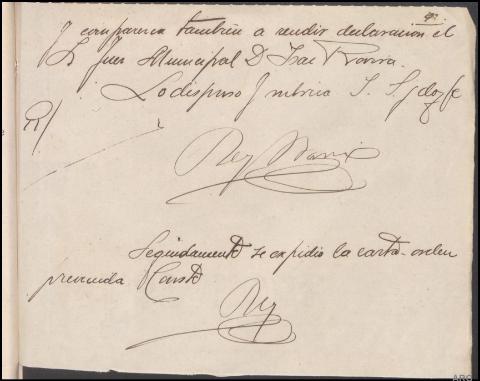 y comparezca tambien a rendir declaracion el
Sr Juez Municipal D. Isac Rovira.
Lo dispuso y rubrica S. Sª doy fe
R/
Rey
Seguidamente se expidio la carta-orden
prevenida Consta
Rey
ARC